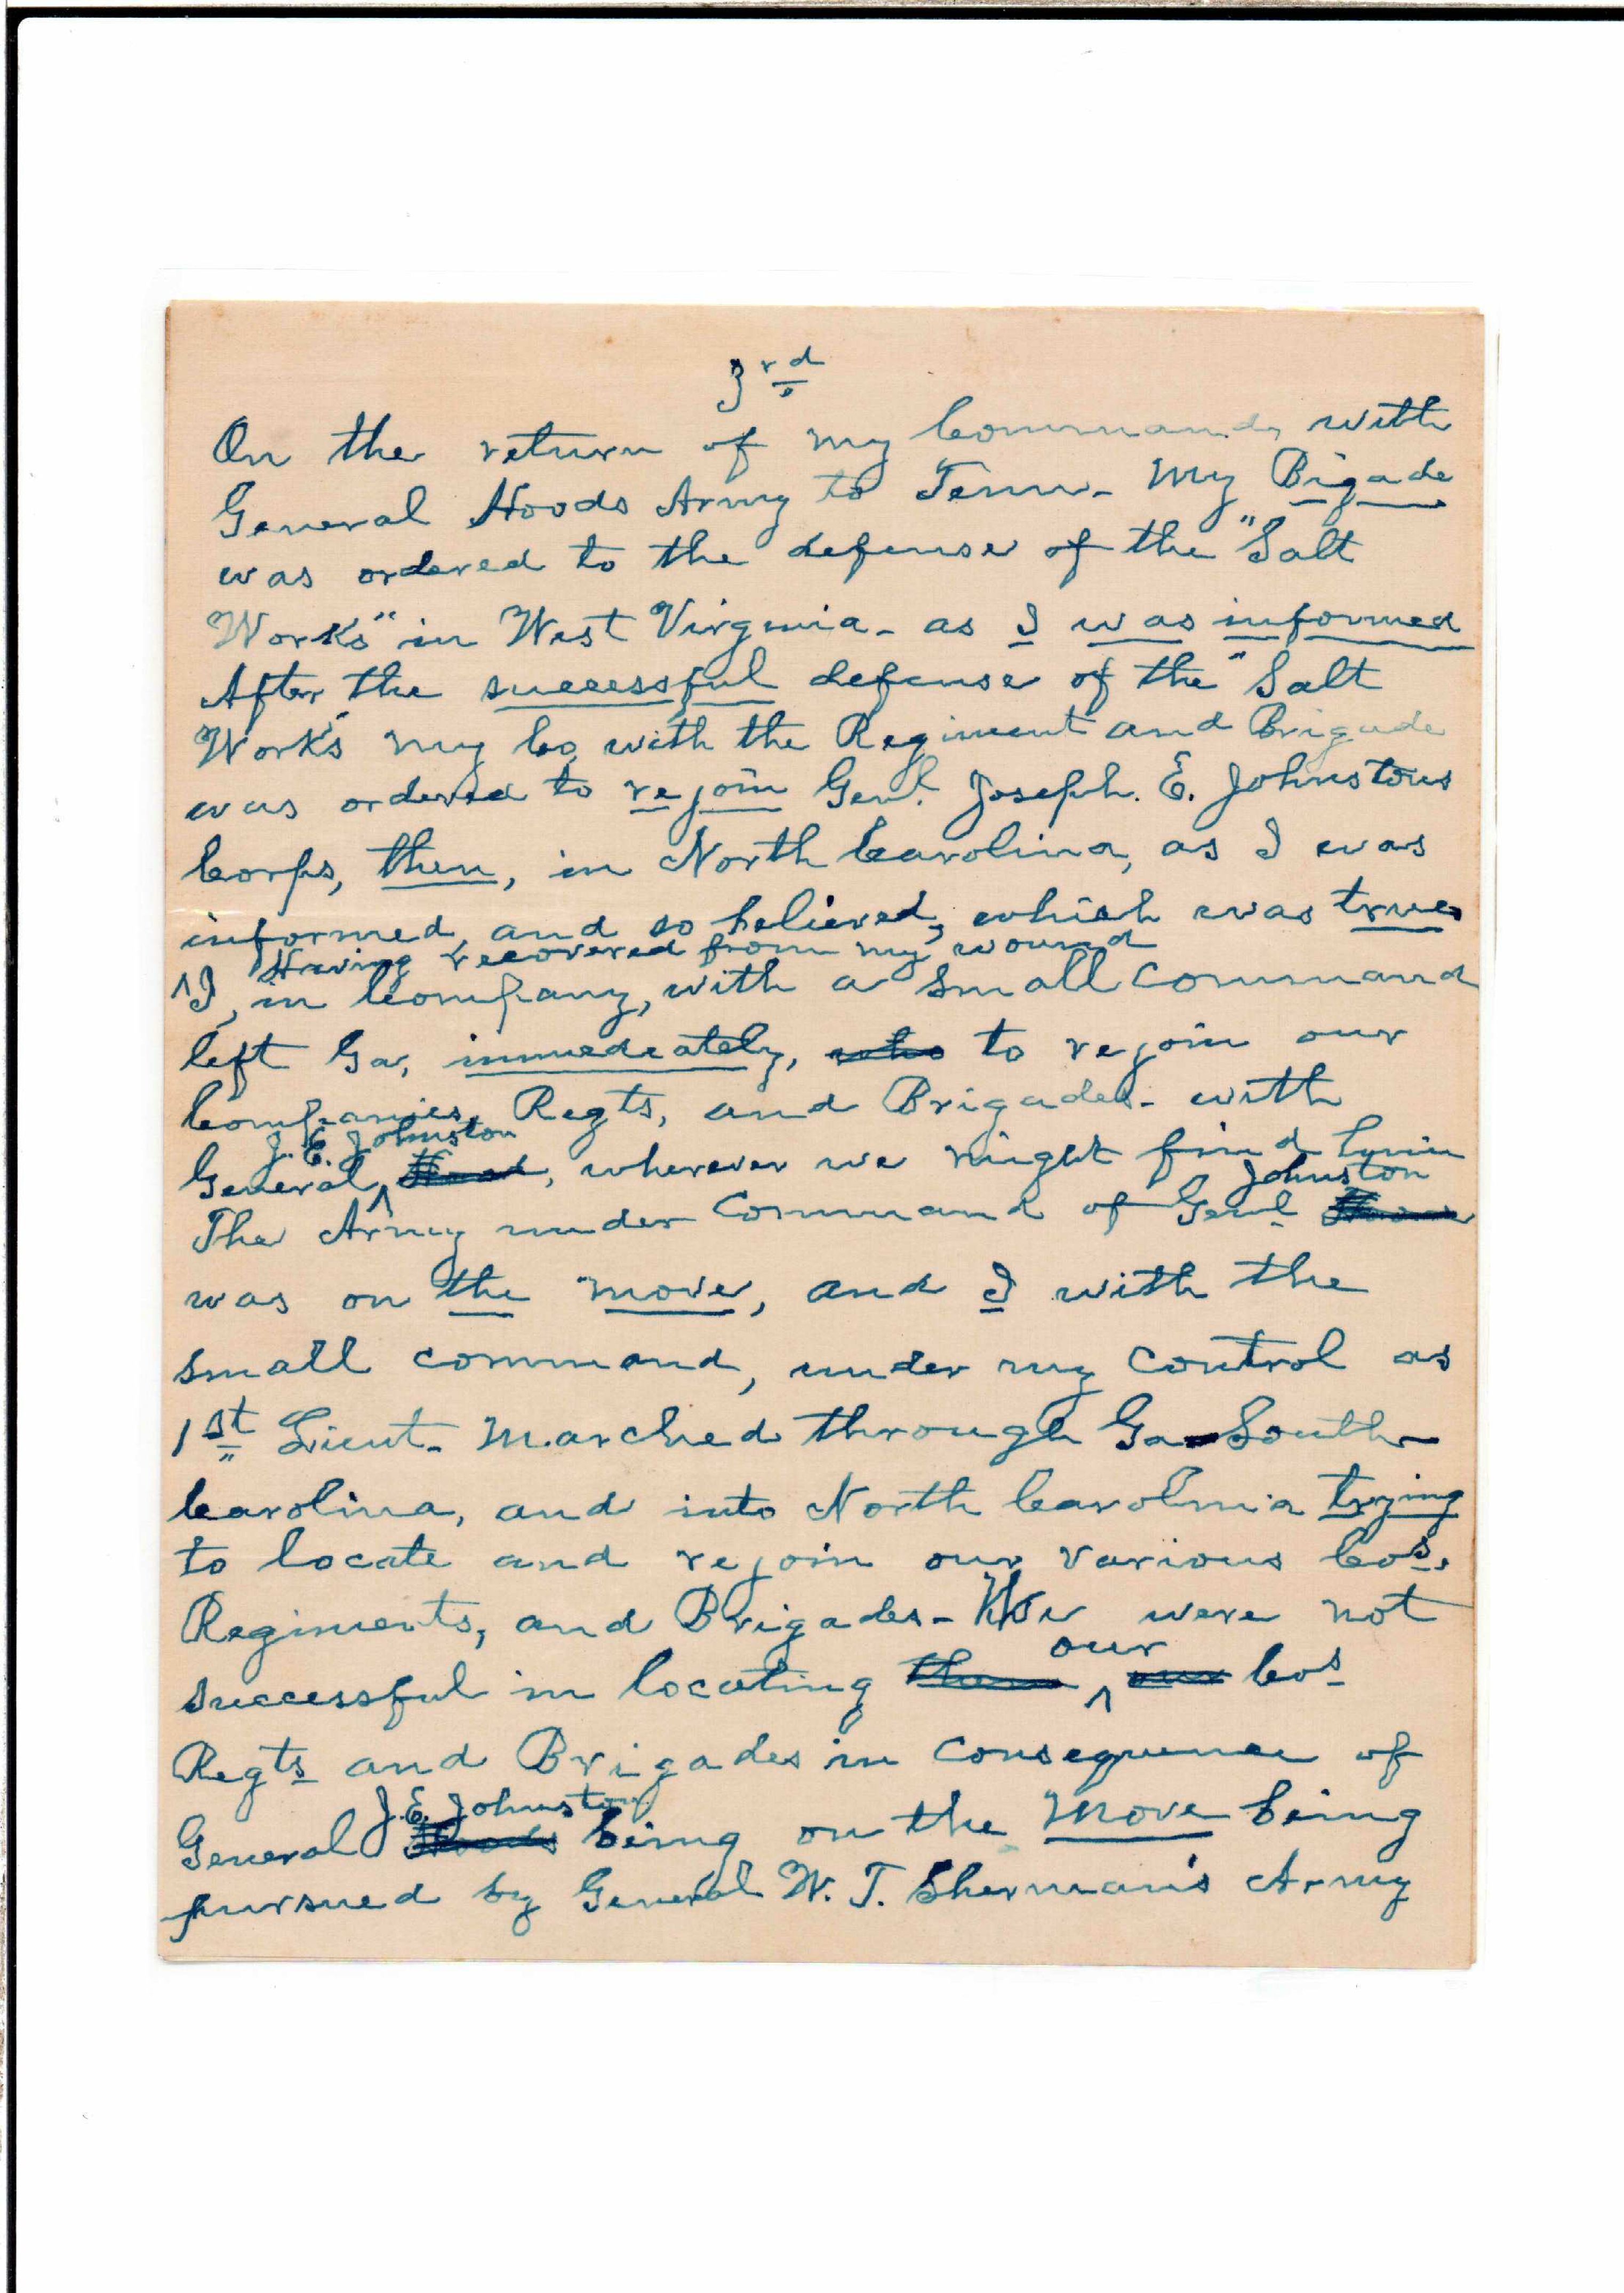 3rd
On the return of my Command, with
General Hoods Army to Tenn- My Bigade
was ordered to the defense of the "Salt
Works" in West Virginia- as I was informed
After the successful defense of the "Salt
Works" my Co, with the Regiment and Brigade
was ordered to rejoin Genl. Joseph. E. Johnstons
Corps, then, in North Carolina, as I was
informed, and so believed, which was true
Having recovered from my wound
^I, in Company, with a small command
left Ga, immediately, who to rejoin our
Companies, Regts, and Brigades- with
J. E. Johnston
General, ^ Hood, wherever we might find him
Johnston
The Army under Command of Genl Hood
was on the move, and I with the
small command, under my control as
1st Lieut- Marched through Ga-South
Carolina, and into North Carolina trying
to locate and rejoin our various Cos.
Regiments, and Brigades- We were not
our
successful in locating them ^ our Cos
Regts and Brigades in Consequence of
J. E. Johnston
General Hoods being on the Move being
pursued by General W. T. Sherman's Army